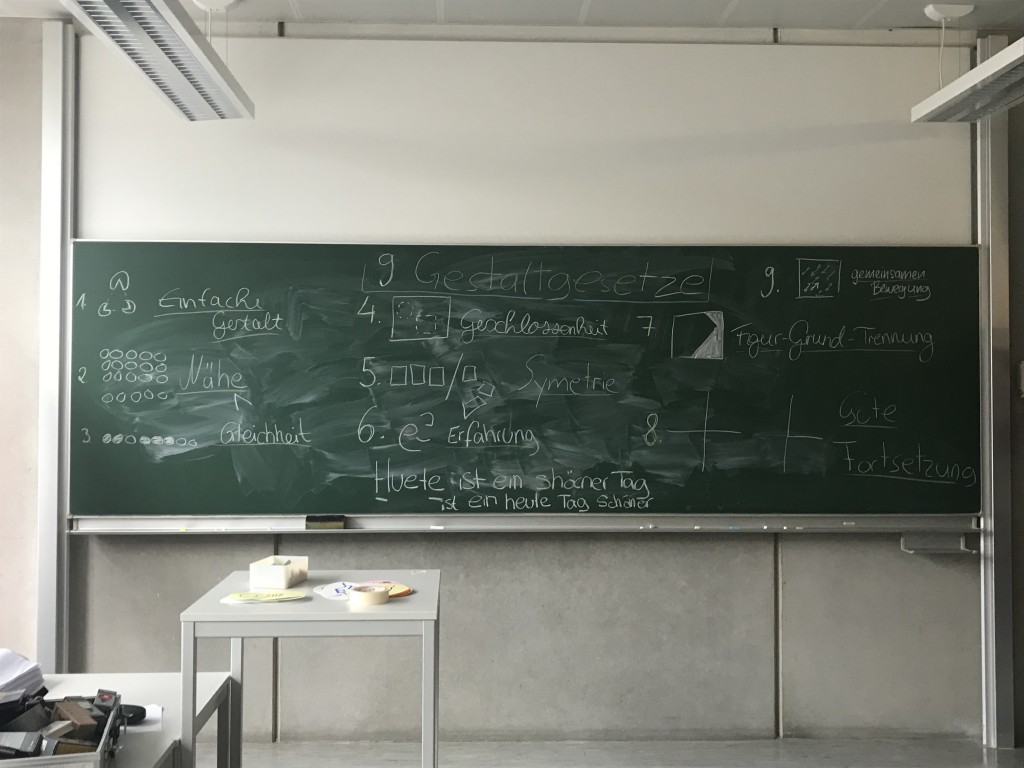 9 Gestaltgesetze
1 Einfache
Gestalt
2 Nähe
3 Gleichheit
4. Geschlossenheit
5. Symetrie
6. e² Erfahrung
Huete ist ein shöner Tag
ist ein heute Tag schöner
7 Figur-Grund-Trennung
8. Gute
Fortsetzung
9. gemeinsamen
Bewegung